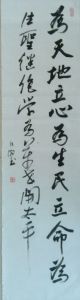 為天地立心為生民立命為
往聖繼絕學為萬世開太平